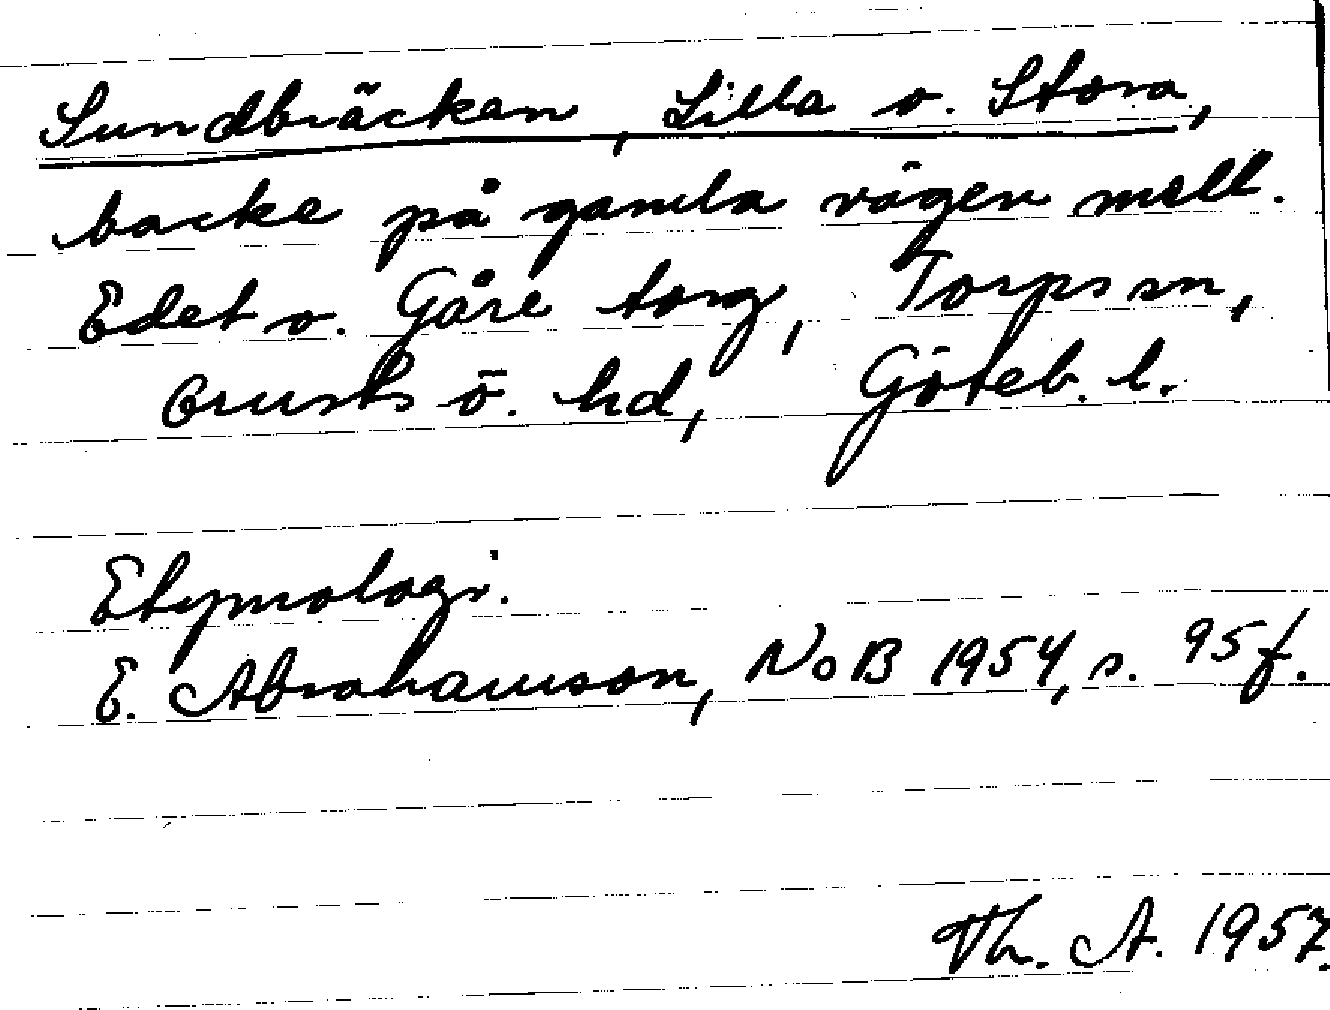 Sundbräckan, Lilla o. Stora,
backe på gamla vägen mell.
Edet o. Gåre torg, Torps sn,
Orusts ö. hd, Göteb. l.
Etymologi.
E. Abrahamson, NoB 1954, s. 95 f.
Th. A. 1957.